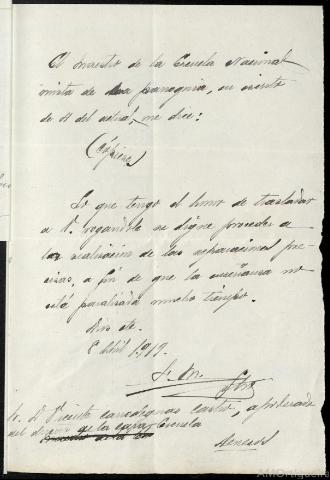 El maestro de la Escuela Nacional
mixta de esa parroquia, en escrito
de 4 del actual, me dice:
(Cópiese)
Lo que tengo el honor de trasladar
a V. rogandole se digne proceder a
la realización de las reparaciones pre-
cisas, a fin de que la enseñanza no
esté paralizada mucho tiempo.
Dios etc.
8 Abril 1919.
Sr. D. Vicente Castro, apoderado
del de la casa Escuela
AMOrtigueira